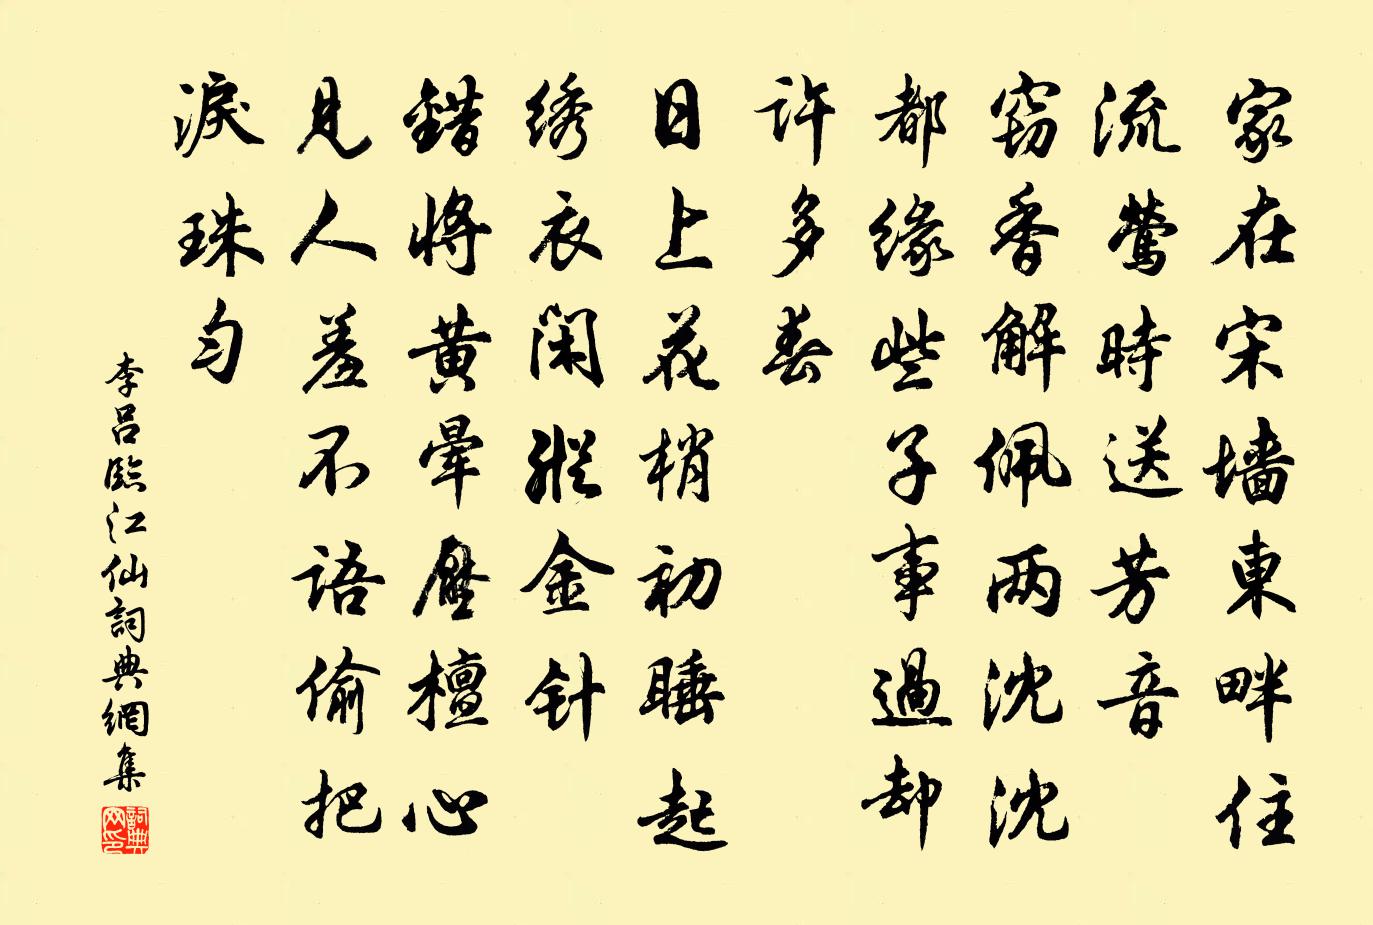 家在宋墻東畔住
流鶯時送芳音
窃香解佩两沈沈
都缘些子事過却
許多春
日上花梢初睡起
绣衣闲縱金针
錯将黄暈壓檀心
見人羞不語偷把
淚珠匀
李呂臨江仙詞典網集
詞典网印